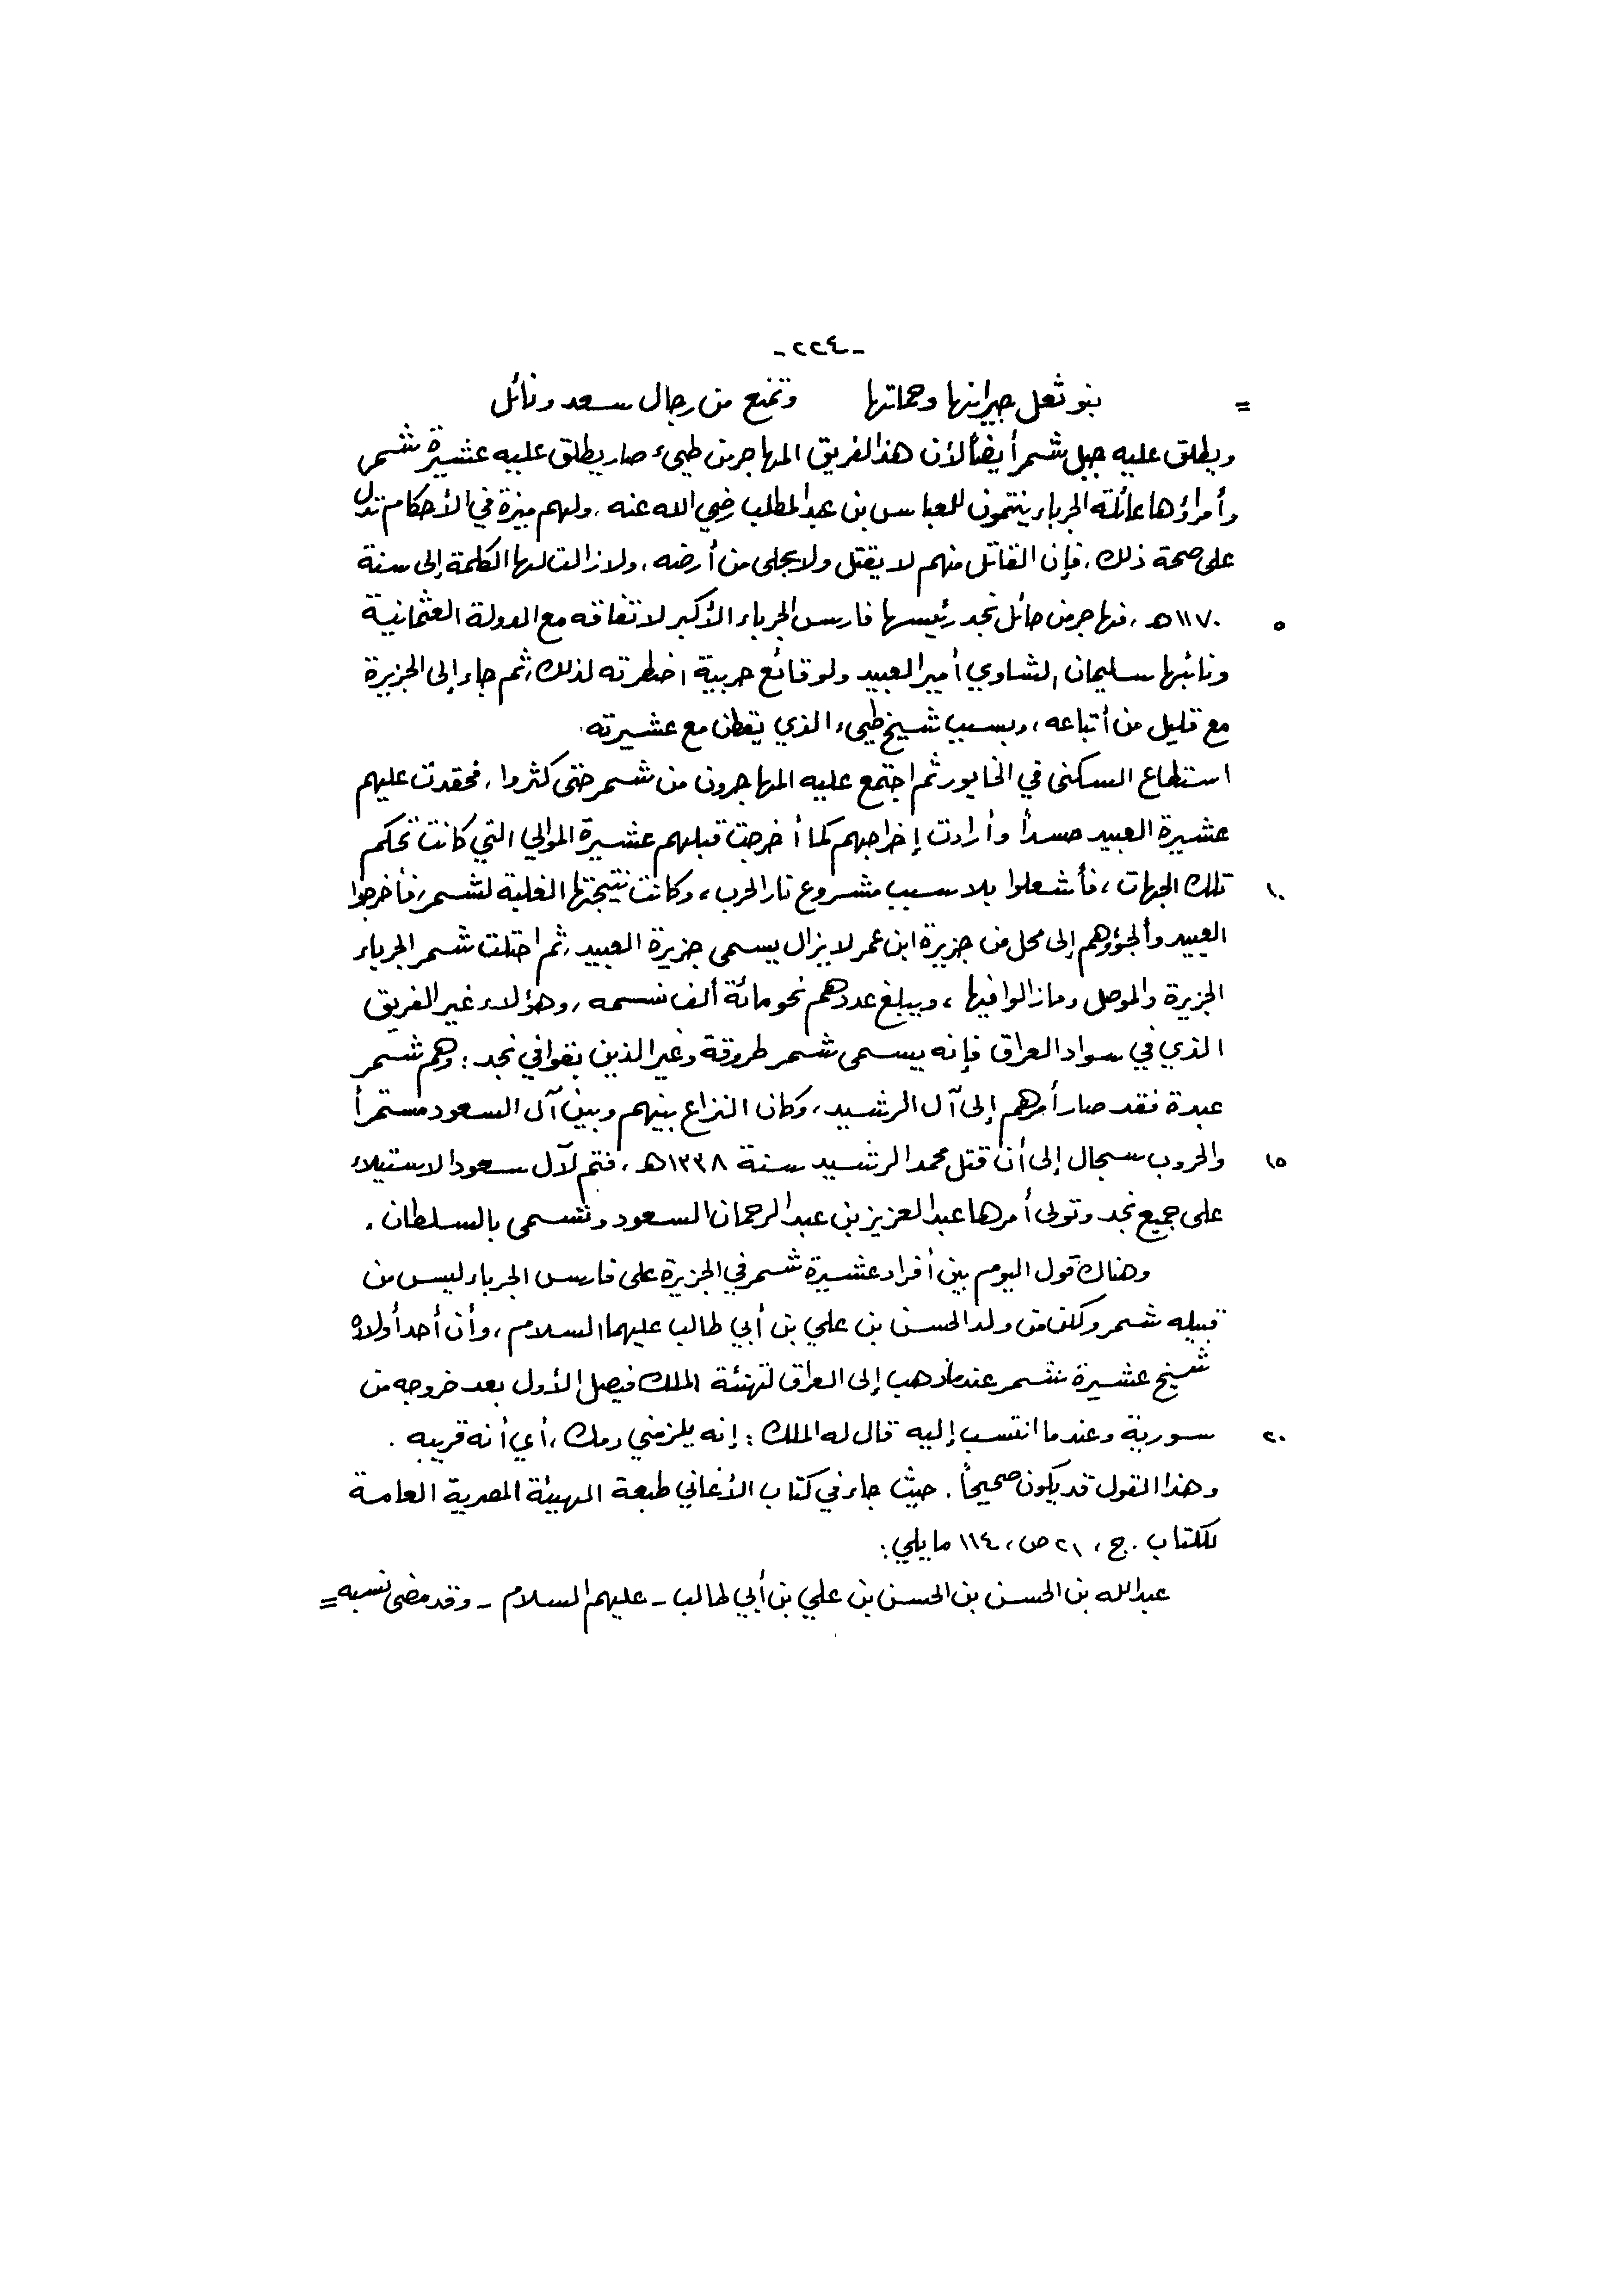 -٢٢٤-
= بنو ثعل جيرانها وحماتها وتمنع من رجال سعد ونائل
ويطلق عليه جبل شمر أيضاً لأن هذا الفريق المهاجر من طيء صار يطلق عليه عشيرة شمر
وأمراؤها عائلة الجرباء ينتمون للعباس بن عبد المطلب رضي الله عنه، ولهم ميزة في الأحكام تدل
على صحة ذلك، فإن القاتل منهم لا يقتل ولا يجلى من أرضه، ولا زالت لها الكلمة إلى سنة
٥ ١١٧٠ هـ، فهاجر من حائل نجد رئيسها فارس الجرباء الأكبر لاتفاقه مع الدولة العثمانية
ونائبها سليمان الشاوي أمير العبيد ولوقائع حربية اضطرته لذلك، ثم جاء إلى الجزيرة
مع قليل من أتباعه، وبسبب شيخ طيء الذي يقطن مع عشيرته.
استطاع السكنى في الخابور ثم اجتمع عليه المهاجرون من شمر حتى كثروا، فحقدت عليهم
عشيرة العبيد حسداً وأرادت إخراجهم كما أخرجت قبلهم عشيرة الموالي التي كانت تحكم
١٠ تلك الجهات، فأشعلوا بلا سبب مشروع نار الحرب، وكانت نتيجتها الغلبة لشمر، فأخرجوا
العبيد وألجؤوهم إلى محل من جزيرة ابن عمر لا يزال يسمى جزيرة العبيد، ثم احتلت شمر الجرباء
الجزيرة والموصل وما زالوا فيها، ويبلغ عددهم نحو مائة ألف نسمه، وهؤلاء غير الفريق
الذي في سواد العراق فإنه يسمى شمر طروقة وغير الذين بقوا في نجد: وهم شمر
عبدة فقد صار أمرهم إلى آل الرشيد، وكان النزاع بينهم وبين آل السعود مستمراً
١٥ والحروب سجال إلى أن قتل محمد الرشيد سنة ١٣٣٨ هـ، فتم لآل سعود الاستيلاء
على جميع نجد وتولى أمرها عبد العزيز بن عبد الرحمان السعود وتسمى بالسلطان.
وهناك قول اليوم بين أفراد عشيرة شمر في الجزيرة على فارس الجرباء ليس من
قبيله شمر ولكن من ولد الحسن بن علي بن أبي طالب عليهما السلام، وأن أحد أولاده
شيخ عشيرة شمر عندما ذهب إلى العراق لتهنئة الملك فيصل الأول بعد خروجه من
٢٠ سورية وعندما انتسب إليه قال له الملك: إنه يلزمني دمك، أي أنه قريبه.
وهذا القول قد يكون صحيحاً. حيث جاء في كتاب الأغاني طبعة الهيئة المصرية العامة
للكتاب. ج، ٢١ ص، ١١٤ ما يلي:
عبد الله بن الحسن بن الحسن بن علي بن أبي طالب - عليهم السلام - وقد مضى نسبه =